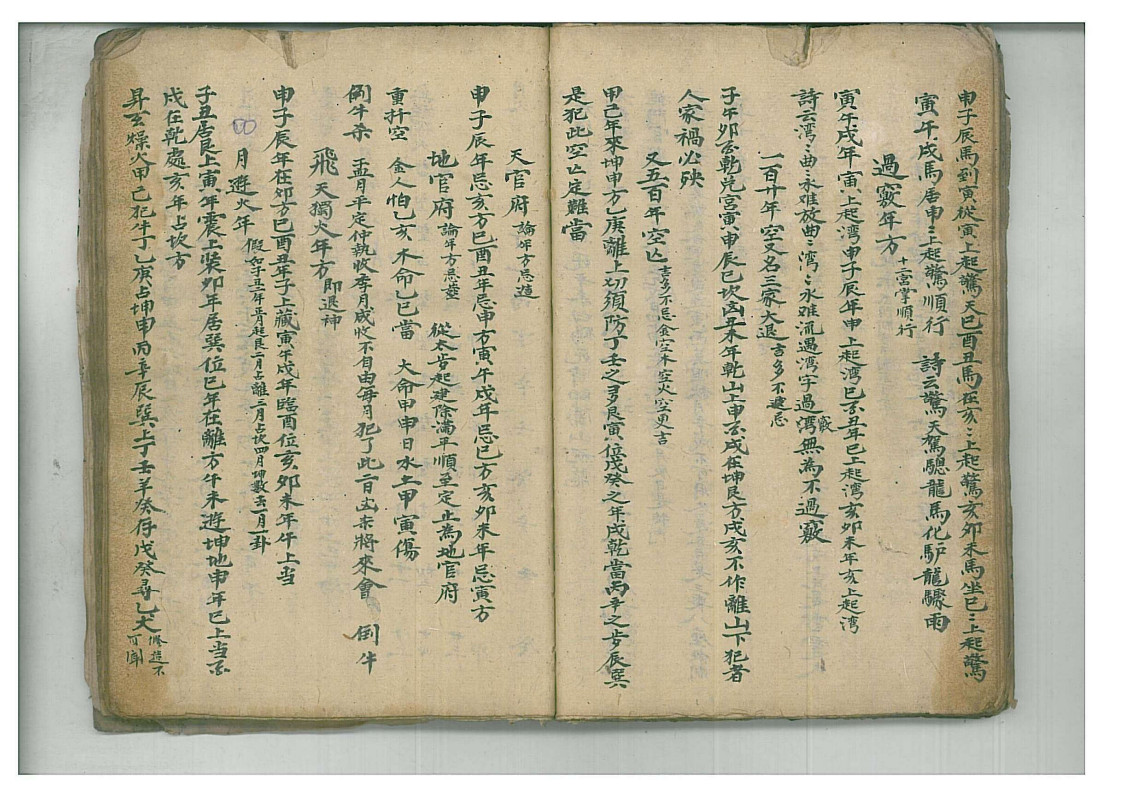 申子辰馬到寅從寅上起驚天巳酉丑馬在亥〻上起驚亥卯未馬坐巳〻上起驚
寅午戌馬居申〻上起驚順行　詩云驚天駕驄龍馬化驴龍驟雨
過竅年方　十二宮掌順行
寅午戌年寅上起湾申子辰年申上起湾巳酉丑年巳上起湾亥卯未年亥上起湾
詩云湾〻曲〻水难放曲〻湾〻水难流遇湾字過湾無為不過竅
竅
一百廿年空又名三家大退　吉多不避忌
子午卯酉乾兌宮寅申辰巳坎凶丑未年乾山上申酉戌在坤艮方戌亥不作離山下犯者
人家禍必殃
又五百年空亡　吉多不忌金空木空火空更吉
甲己年來坤申方乙庚離上切須防丁壬之年艮寅位戊癸之年戌乾當丙辛之步辰巽
是犯此空亡定難當
天官府　論年方忌造
申子辰年忌亥方巳酉丑年忌申方寅午戌年忌巳方亥卯未年忌寅方
地官府　論年方忌葬　從太歩起建除滿平順至定止為地官府
重扦空　金人怕乙亥木命乙巳當　大命甲申日水土甲寅傷
倒牛杀　孟月平定仲執收季月成收不自由每月犯了此二日凶杀將來會　倒牛
飛天獨火年方　即退神
申子辰年在卯方巳酉丑年子上藏寅午戌年臨酉位亥卯未年午上当
月遊火年　假如子丑年正月起艮二月占離三月占坎四月坤数去一月一卦
子丑居艮上寅年震上裝卯年居巽位巳年在離方午未遊坤地申年巳上当酉
戌在乾處亥年占坎方
昇玄燥火甲己犯牛丁乙庚占坤申丙辛辰巽上丁壬羊癸存戊癸尋乙犬　修造不可傷